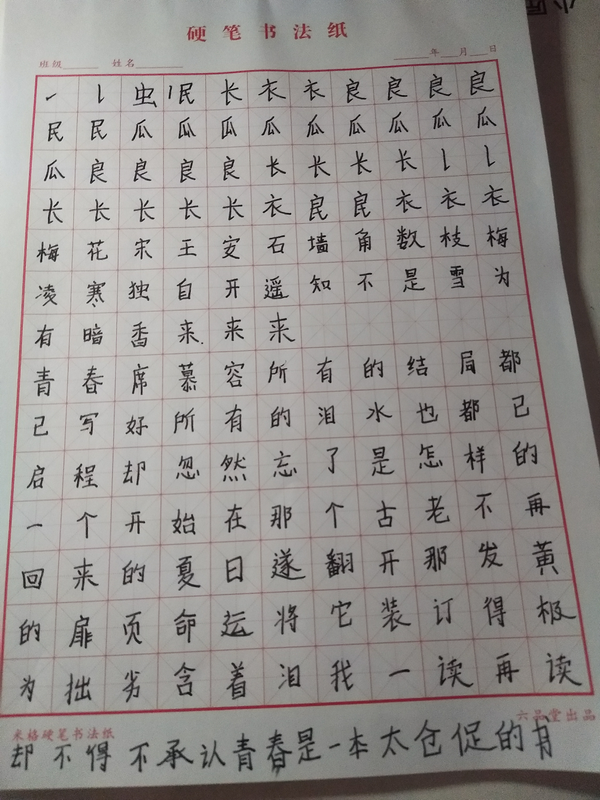 硬笔书法纸
班级 姓名 年 月 日
㇀ 丨 虫 民 长 衣 衣 良 良 良 良
民 民 瓜 瓜 瓜 瓜 瓜 瓜 瓜 瓜 瓜
瓜 良 良 良 良 长 长 长 长
长 长 长 长 长 衣 良 良 衣 衣 衣
梅 花 宋 王 安 石 墙 角 数 枝 梅
凌 寒 独 自 开 遥 知 不 是 雪 为
有 暗 香 来 来 来
青 春 席 慕 容 所 有 的 结 局 都
已 写 好 所 有 的 泪 水 也 都 已
启 程 却 忽 然 忘 了 是 怎 样 的
一 个 开 始 在 那 个 古 老 不 再
回 来 的 夏 日 遂 翻 开 那 发 黄
的 扉 页 命 运 将 它 装 订 得 极
为 拙 劣 含 着 泪 我 一 读 再 读
米格硬笔书法纸 六品堂出品
却不得不承认青春是一本太仓促的